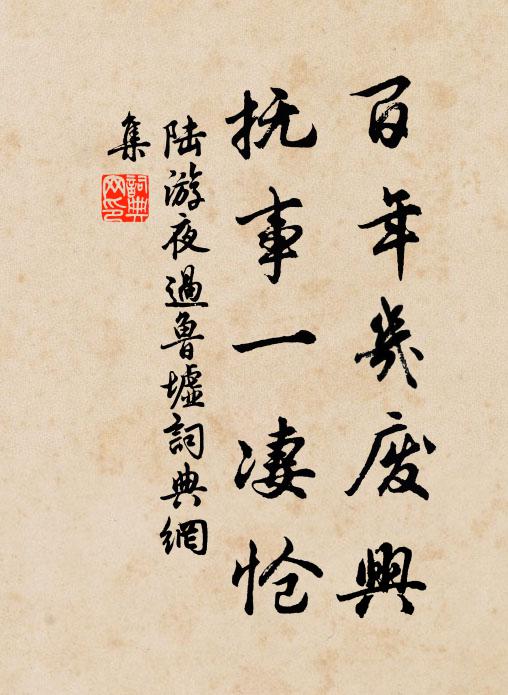 百年几废興
抚事一凄怆
陆游夜過魯墟詞典網
集
詞典
网印